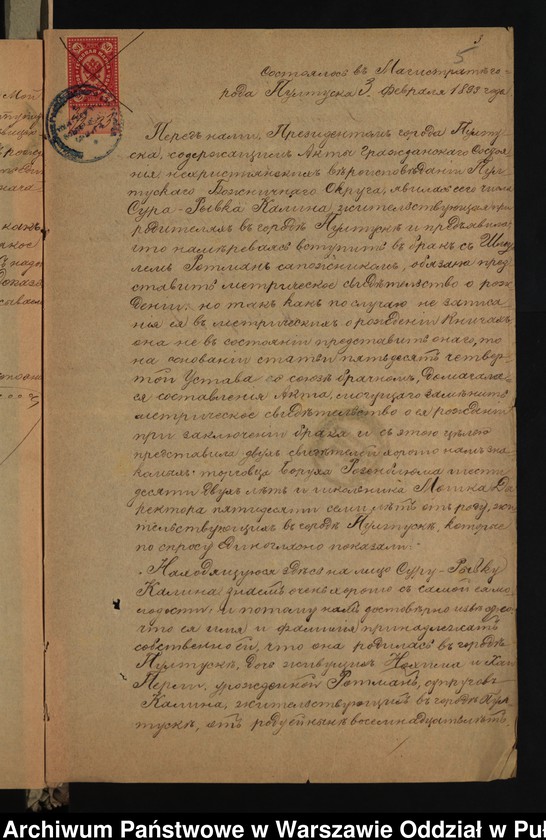 5
Состоялось въ Магистратѣ го-
рода Пултуска 3 Февраля 1893 года
Передъ нами, Президентомъ города Пулту-
ска, содержащимъ Акты Гражданскаго Состоя-
нія нехристіанскихъ вѣроисповѣданій Пул-
тускаго Божничнаго Округа, явилась сего числа
Сура-Рывка Калина, жительствующая при
родителяхъ въ городѣ Пултускѣ и предъявила,
что намѣреваясь вступить въ бракъ съ
Ротманъ сапожникомъ, обязана пред-
ставить метрическое свидѣтельство о рож-
деніи; но такъ какъ по случаю не записа-
нія ея въ метрическихъ о рожденіи Книгахъ,
она не въ состояніи представить онаго, то
на основаніи статьи пятьдесятъ четвер-
той Устава о союзѣ брачномъ, домагала-
ся составленія Акта, могущаго замѣнить
метрическое свидѣтельство о ея рожденіи
при заключеніи брака и съ этою цѣлью
представила двухъ свидѣтелей хорошо намъ зна-
комыхъ: торговца Боруха Розенблюма шести
десяти двухъ лѣтъ и школьника Мошка Ди-
ректора пятидесяти семи лѣтъ отъ роду, жи-
тельствующихъ въ городѣ Пултускѣ, которые
по спросу единогласно показали:
„Находящуюся здѣсь на лицо Суру-Рывку
Калина знаемъ очень хорошо съ самой ея мо-
лодости и потому намъ достовѣрно извѣстно,
что ея имя и фамилія принадлежатъ
собственности, что она родилась въ городѣ
Пултускѣ, дочь живущихъ Нохима и Хаи
Перли, урожденной Ротманъ, супруговъ
Калина, жительствующихъ въ городѣ Пул-
тускѣ, отъ роду ей нынѣ восемнадцать лѣтъ,
Archiwum Państwowe w Warszawie Oddział w Pu